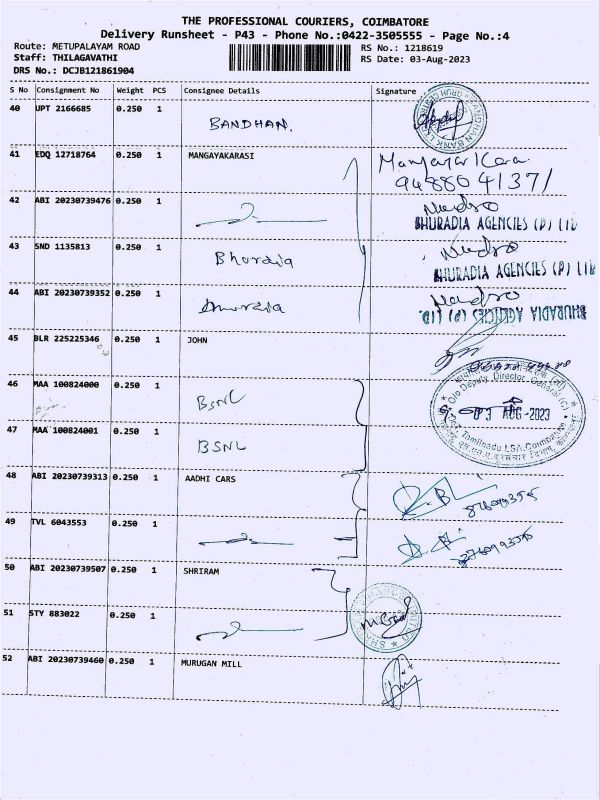 THE PROFESSIONAL COURIERS, COIMBATORE
Delivery Runsheet - P43 - Phone No.:0422-3505555 - Page No.:4
Route: METUPALAYAM ROAD RS No.: 1218619
Staff: THILAGAVATHI RS Date: 03-Aug-2023
DRS No.: DCJB121861904
S No Consignment No Weight PCS Consignee Details Signature
40 UPT 2166685 0.250 1 BANDHAN.
41 EDQ 12718764 0.250 1 MANGAYAKARASI
42 ABI 20230739476 0.250 1
BHURADIA AGENCIES (P) LTD
43 SND 1135813 0.250 1 Bhuradia
BHURADIA AGENCIES (P) LTD
44 ABI 20230739352 0.250 1
BHURADIA AGENCIES (P) LTD.
45 BLR 225225346 0.250 1 JOHN
46 MAA 100824000 0.250 1 BSNL
O/o Deputy Director General
03 AUG 2023
Tamilnadu LSA, Coimbatore
47 MAA 100824001 0.250 1 BSNL
48 ABI 20230739313 0.250 1 AADHI CARS
49 TVL 6043553 0.250 1
50 ABI 20230739507 0.250 1 SHRIRAM
51 STY 883022 0.250 1
52 ABI 20230739460 0.250 1 MURUGAN MILL